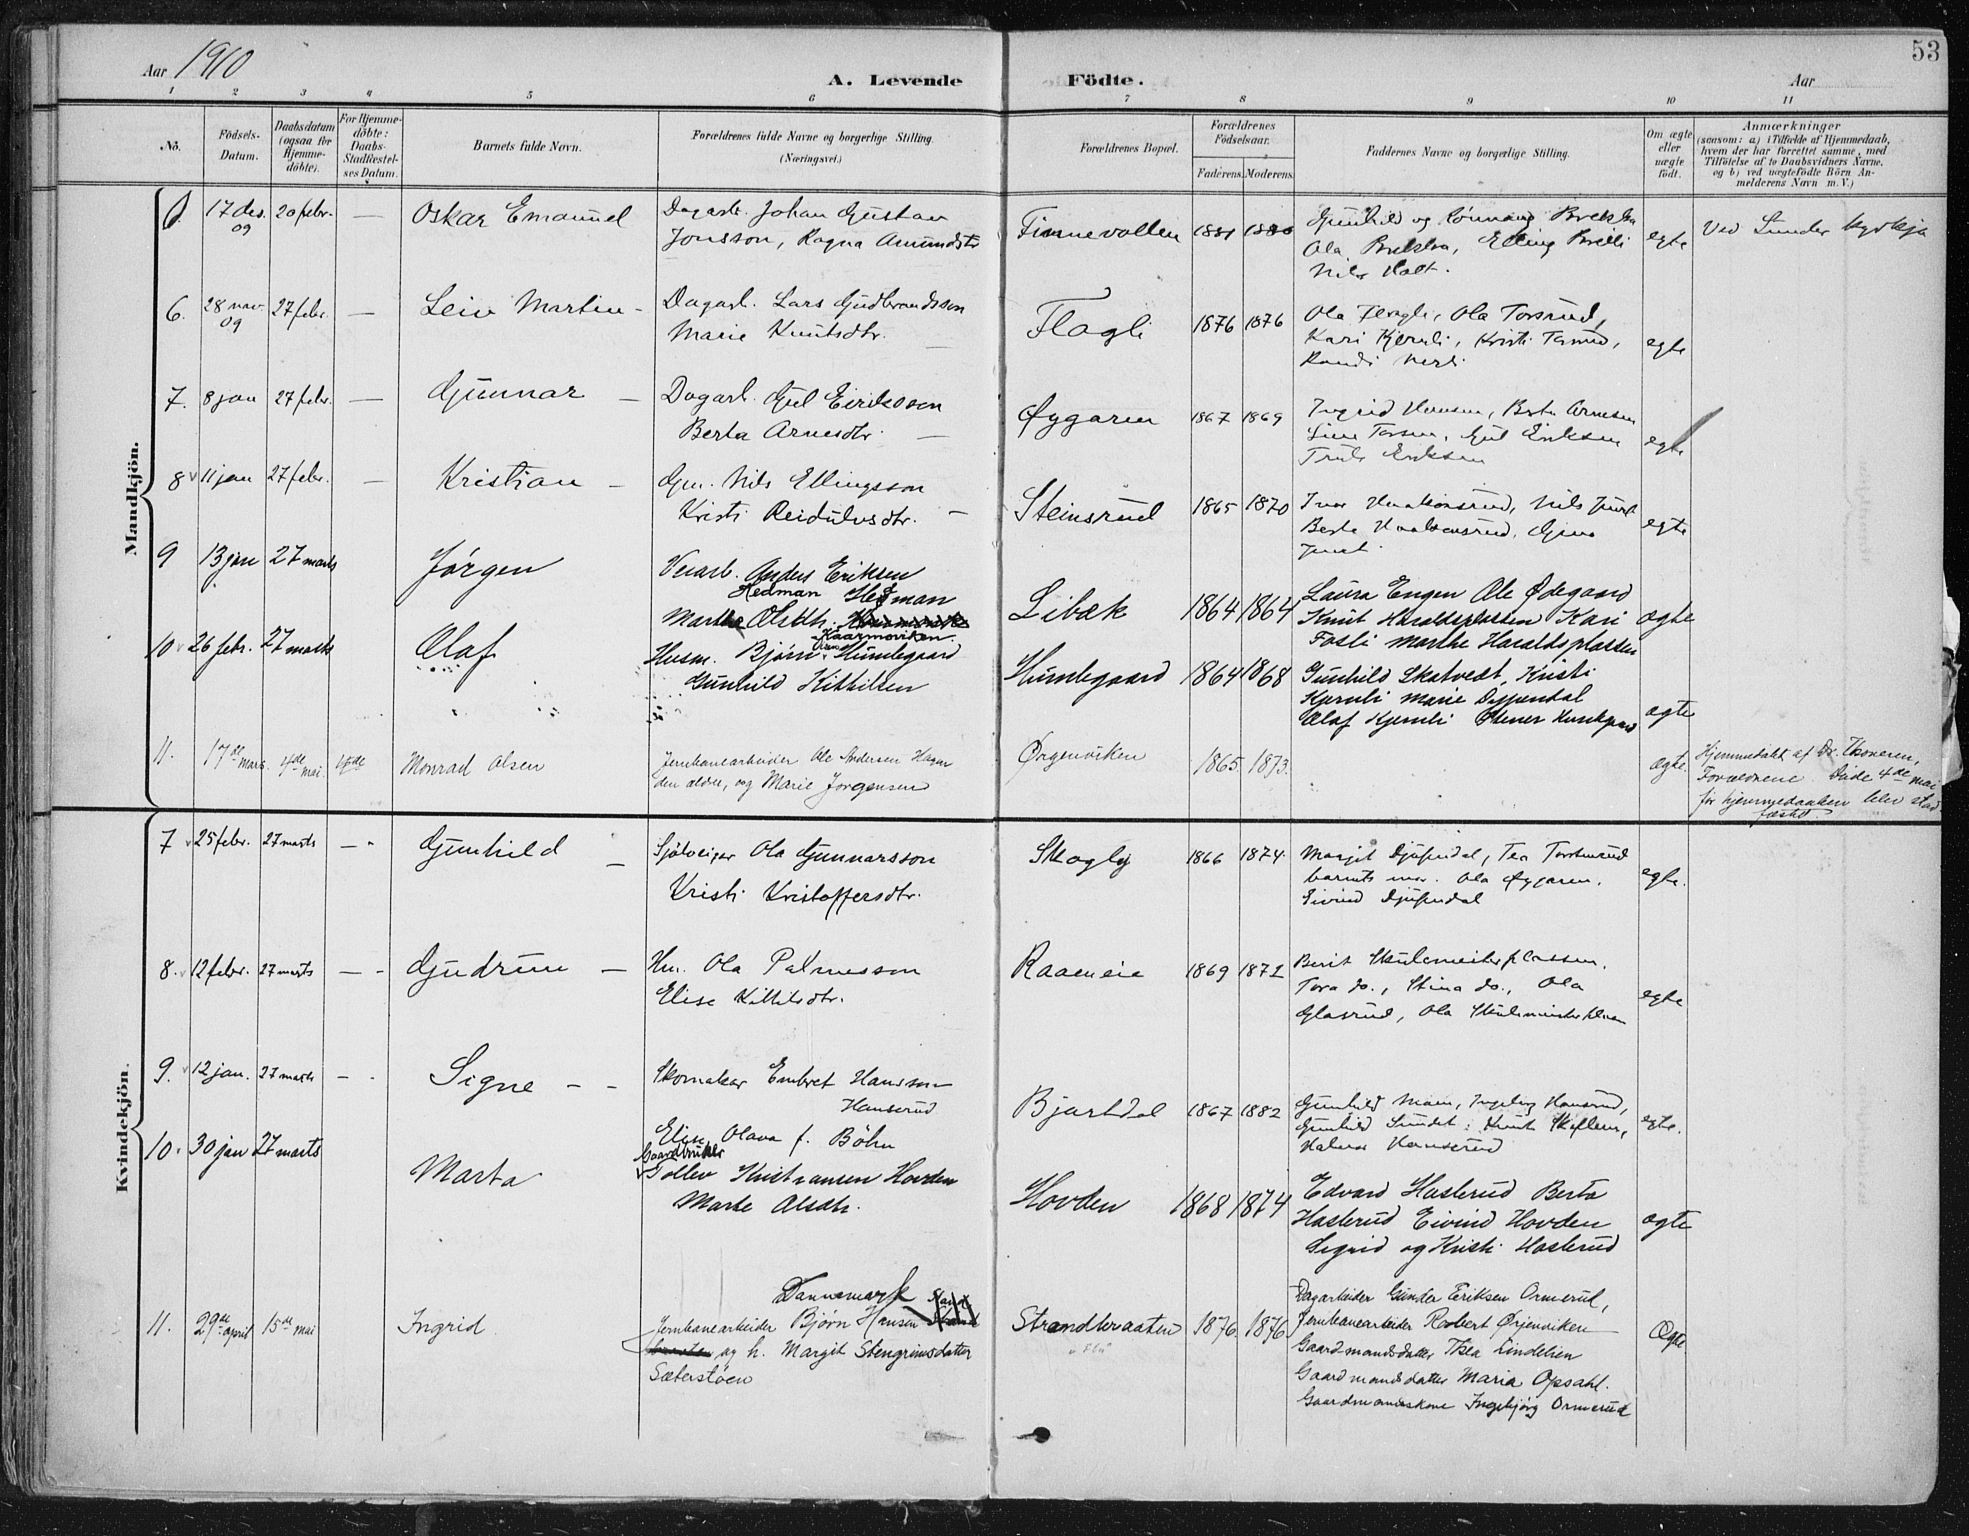 53
Aar 1910
A. Levende Födte.
Aar
1 2 3 4 5 6 7 8 9 10 11
No.
Födsels-
Datum.
Daabsdatum
(ogsaa for
Hjemme-
döbte).
For Hjemme-
döbte:
Daabs-
Stadfæstel-
ses Datum.
Barnets fulde Navn.
Forældrenes fulde Navne og borgerlige Stilling.
(Næringsvei.)
Forældrenes Bopæl.
Forældrenes
Födselsaar.
Faderens. Moderens.
Faddernes Navne og borgerlige Stilling.
Om ægte
eller
uægte
födt.
Anmærkninger
(saasom: a) i Tilfælde af Hjemmedaab,
hvem der har forrettet samme, med
Tilföielse af to Daabsvidners Navne,
og b) ved uægtefödte Börn An-
melderens Navn m. V.)
Mandkjön.
17 des. 09 20 febr. — Oskar Emanuel
Dagarb. Johan Gustav
Jonsson, Ragna Amundsdtr
Finnevollen 1881
Gunhild og Rønnaug
Ola Elling
Nils Holt.
egte
Ved Lunder kyrkje
6. 28 nov. 09 27 febr. — Leiv Martin -
Dagarb. Lars Gudbrandsson
Marie Knutsdtr.
Flagli 1876 1876
Ola Flagli, Ola Torsrud,
Kari Kjernli, Kristi
Randi
egte
7. 8 jan 27 febr. — Gunnar —
Dagarb. Gul Eiriksson
Berta Arnesdtr.
Øygaren 1867 1869
Ingrid Hansen, Berta Arnesen
Gul Eriksen
Truls Eriksen
egte
8 11 jan 27 febr. — Kristian —
Gm. Nils Ellingsson
Kristi Reidulvsdtr. —
Steinsrud 1865 1870
Ivar Haakonsrud, Nils
Berta Haakonsrud,
egte
9 13 jan 27 marts Jørgen
Anders Eriksen
Hedman Hedman
Marthe Olsdtr.
Kaarmoviken
Libæk 1864 1864
Laura Engen Ole Ødegaard
Knut Haraldsplassen Kari
Fosli Marthe Haraldsplassen
ægte
10 26 febr. 27 marts Olaf
Husm. Bjørn Humlegaard
Gunhild Kittilsen
Humlegaard 1864 1868
Gunhild Skatvedt, Kristi
Kjernli Marie Djupendal
Olaf Kjernli
ægte
11. 17de mars. 4de mai. 4de Monrad Olsen
Jernbanearbeider Ole Andersen Hagen
den ældre, og Marie Jørgensen
Ørgenviken 1865. 1873.
ægte.
Hjemmedøbt af Dr. Thoresen,
Forældrene. Døde 4de mai
før hjemmedaaben blev stad-
fæstet.
Kvindekjön.
7 25 febr. 27 marts — Gunhild —
Sjølveigar Ola Gunnarsson
Kristi Kristoffersdtr.
Skogly 1866 1874.
Margit Djupendal, Tea Torsrud
barnets mor. Ola Øygaren.
Eivind Djupendal
egte.
8. 12 febr. 27 marts — Gudrun —
Hm. Ola Palmesson
Elise Kittilsdtr.
Raaeneie 1869 1872
Berit Skulemeisterplassen.
Tora do., Stina do., Ola
Glasrud, Ola Skulemeisterplassen
egte
9. 12 jan. 27 marts — Signe — —
Skomakar Embret Hansson
Hanserud
Elise Olava f. Bøhn
Bjartdal 1867 1882
Gunhild Moen, Ingeborg Hanserud,
Gunhild Sundet, Knut
Halvor Hanserud
egte.
10. 30 jan 27 marts Marta
Gaardbruker
Tollev Kristiansen Hovden
Marte Olsdtr.
Hovden 1868 1874
Edvard Haslerud Berta
Haslerud Eivind Hovden
Sigrid og Kristi Haslerud
ægte
11. 29de april 15de mai Ingrid.
Dannemark
Jernbanearbeider Bjørn Hansen
og h. Margit Stengrimsdatter
Sæterstøen
Strandbraaten 1876. 1876
"Flå"
Dagarbeider Gunder Eriksen Ormerud,
Jernbanearbeider Robert Ørjenviken
Gaardmandsdatter Thea Lindelien
Gaardmandsdatter Maria Opsahl.
Gaardmandskone Ingebjørg Ormerud
Ægte.